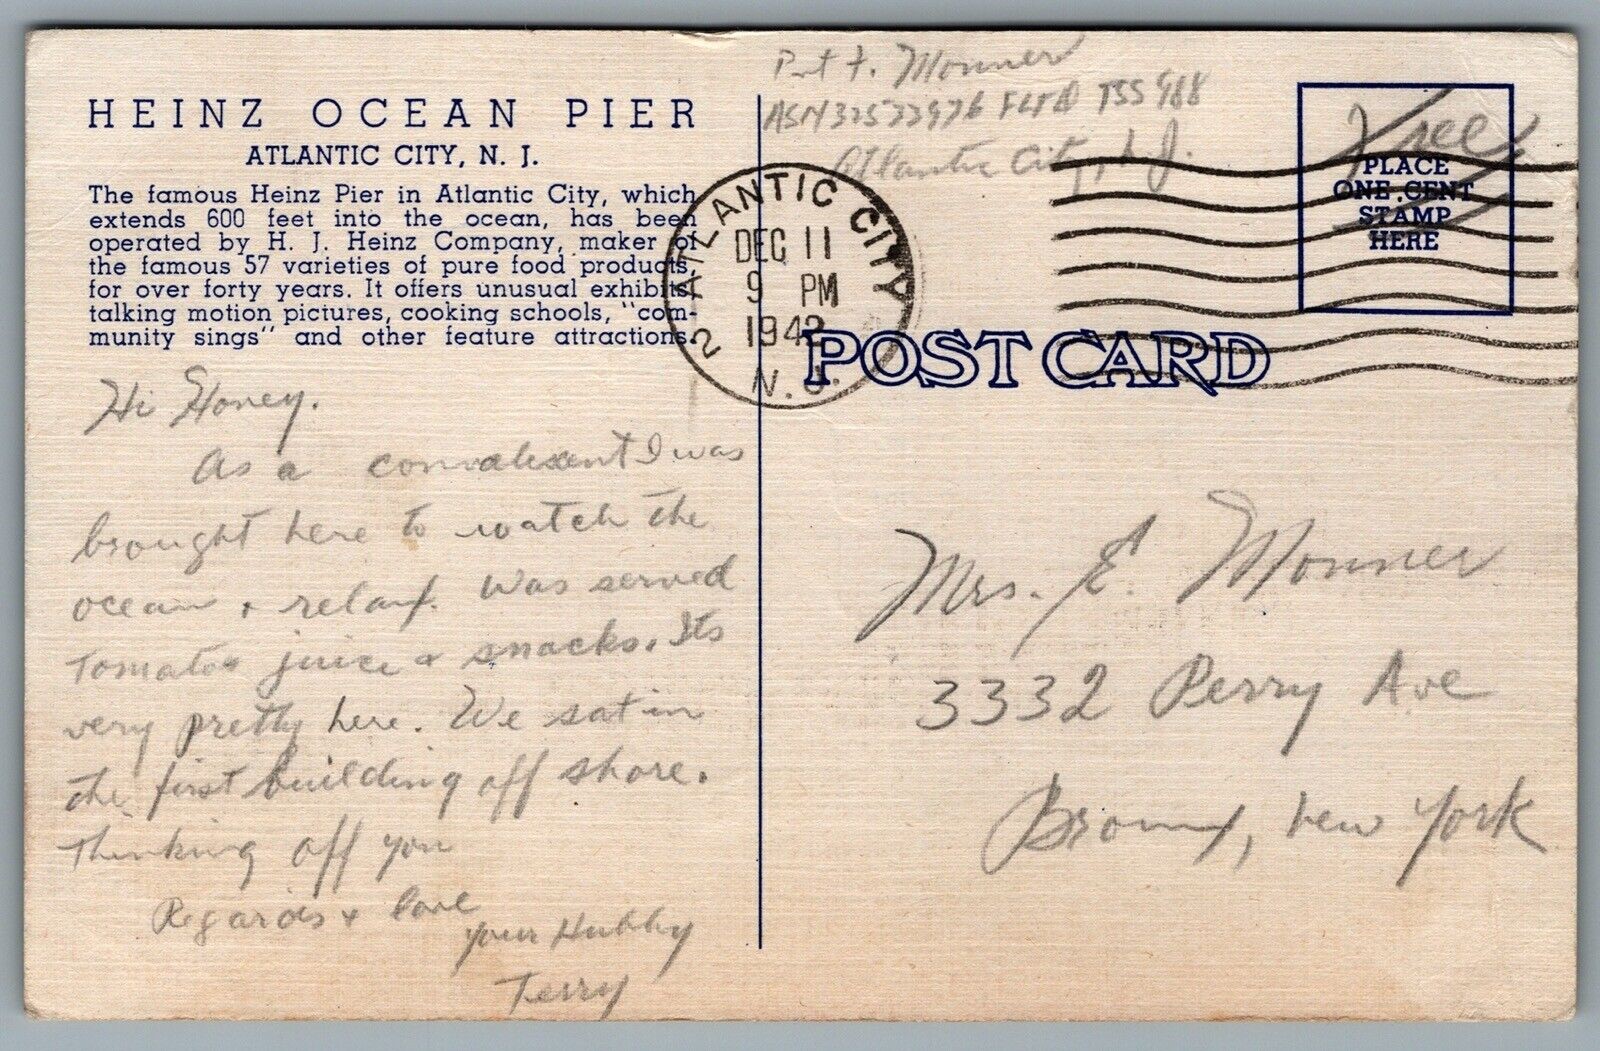 HEINZ OCEAN PIER
ATLANTIC CITY, N. J.
The famous Heinz Pier in Atlantic City, which
extends 600 feet into the ocean, has been
operated by H. J. Heinz Company, maker of
the famous 57 varieties of pure food products,
for over forty years. It offers unusual exhibits,
talking motion pictures, cooking schools, "com-
munity sings" and other feature attractions.
Hi Honey.
As a convalescent I was
brought here to watch the
ocean + relax. Was served
Tomatoe juice & snacks. Its
very pretty here. We sat in
the first building off shore.
Thinking off you
Regards + love
your Hubby
Terry
Monner
TSS 988
Atlantic City, N J.
Free
PLACE
ONE CENT
STAMP
HERE
2 ATLANTIC CITY
DEC 11
9 PM
1942
N.J.
POST CARD
Mrs. E. Monner
3332 Perry Ave
Bronx, New York